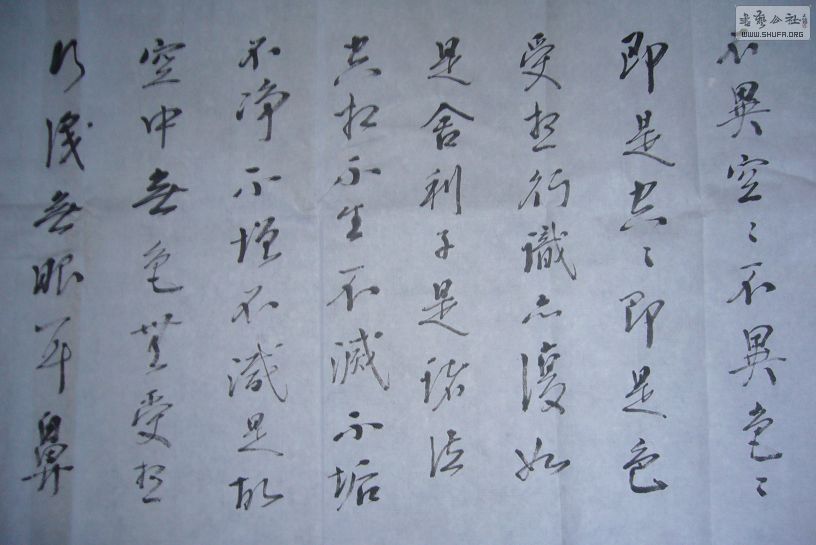 不異空〻不異色〻
即是空〻即是色
受想行識亦復如
是舍利子是諸法
空相不生不滅不垢
不净不增不減是故
空中無色無受想
行識無眼耳鼻
書藝公社
WWW.SHUFA.ORG